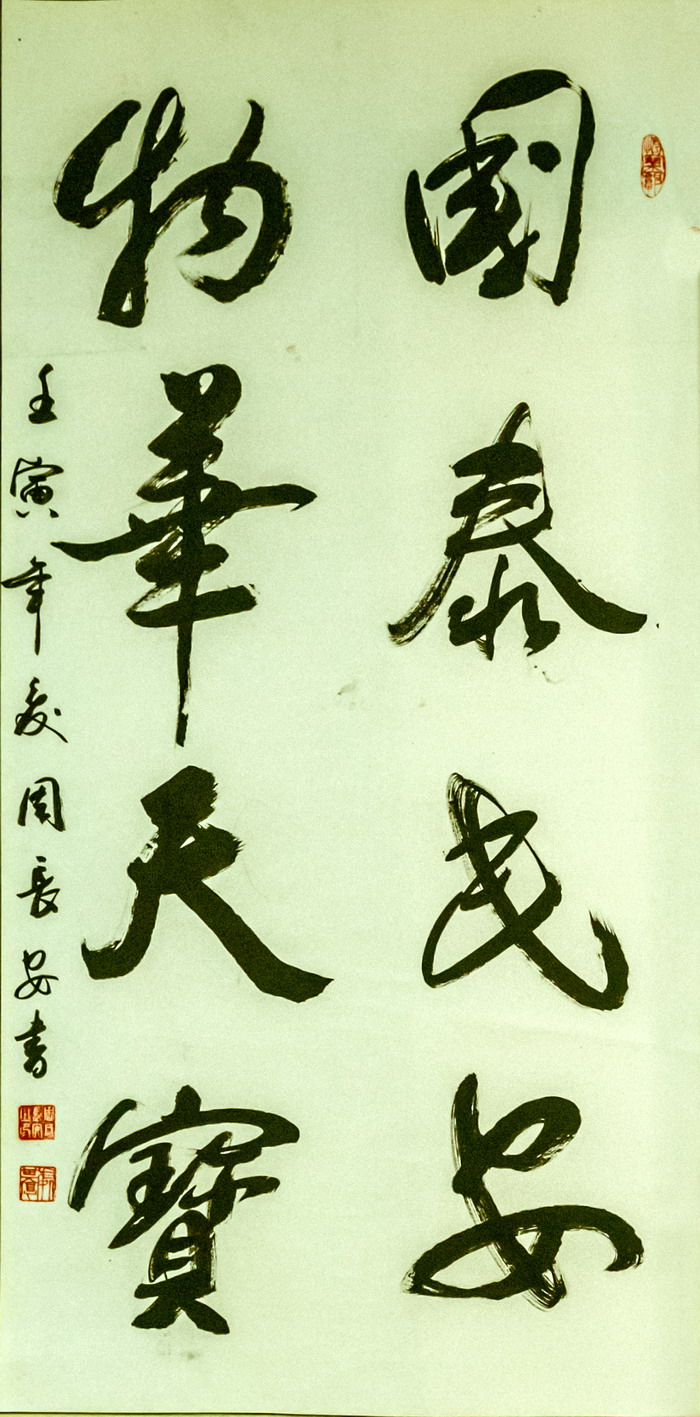 國泰民安
物華天寶
壬寅年夏周長安書